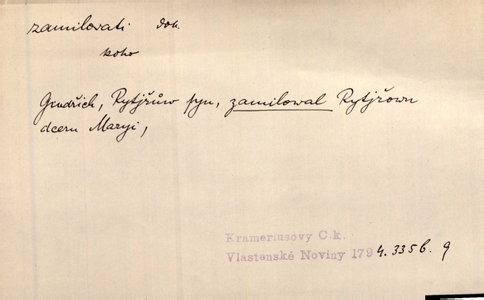 zamilovati dok.
koho
Gindřich, Rytjřůw syn, zamilowal Rytjřown
dceru Maryi,
Krameriusovy C.k.
Vlastenské Noviny 1794. 335b. 9